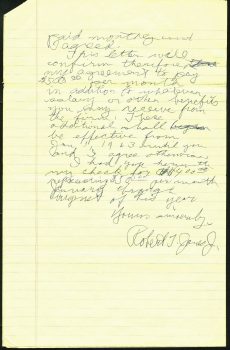 paid monthly and
agreed.
This letter will
confirm therefore
my agreement to pay
per month
in addition to whatever
salary or other benefits
you may receive from
the firm. These
additional shall
be effective from
Jan. 1 1963 until you
and I agree otherwise.
I had you
my check for $
representing per month
January through
of this year
Yours sincerely,
Robert T. Jones Jr.